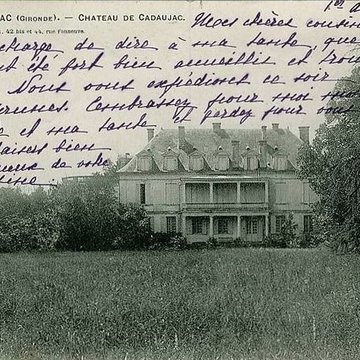 AC (GIRONDE). — CHATEAU DE CADAUJAC.
, 42 bis et 44, rue Fonneuve.
1er
Mes chères cousin
charge de dire à ma tante que
t été fort bien accueillis et trou
Nous vous expédierons ce soir
Embrassez pour moi mon
e et ma tante et gardez pour vous
baisers bien
de votre